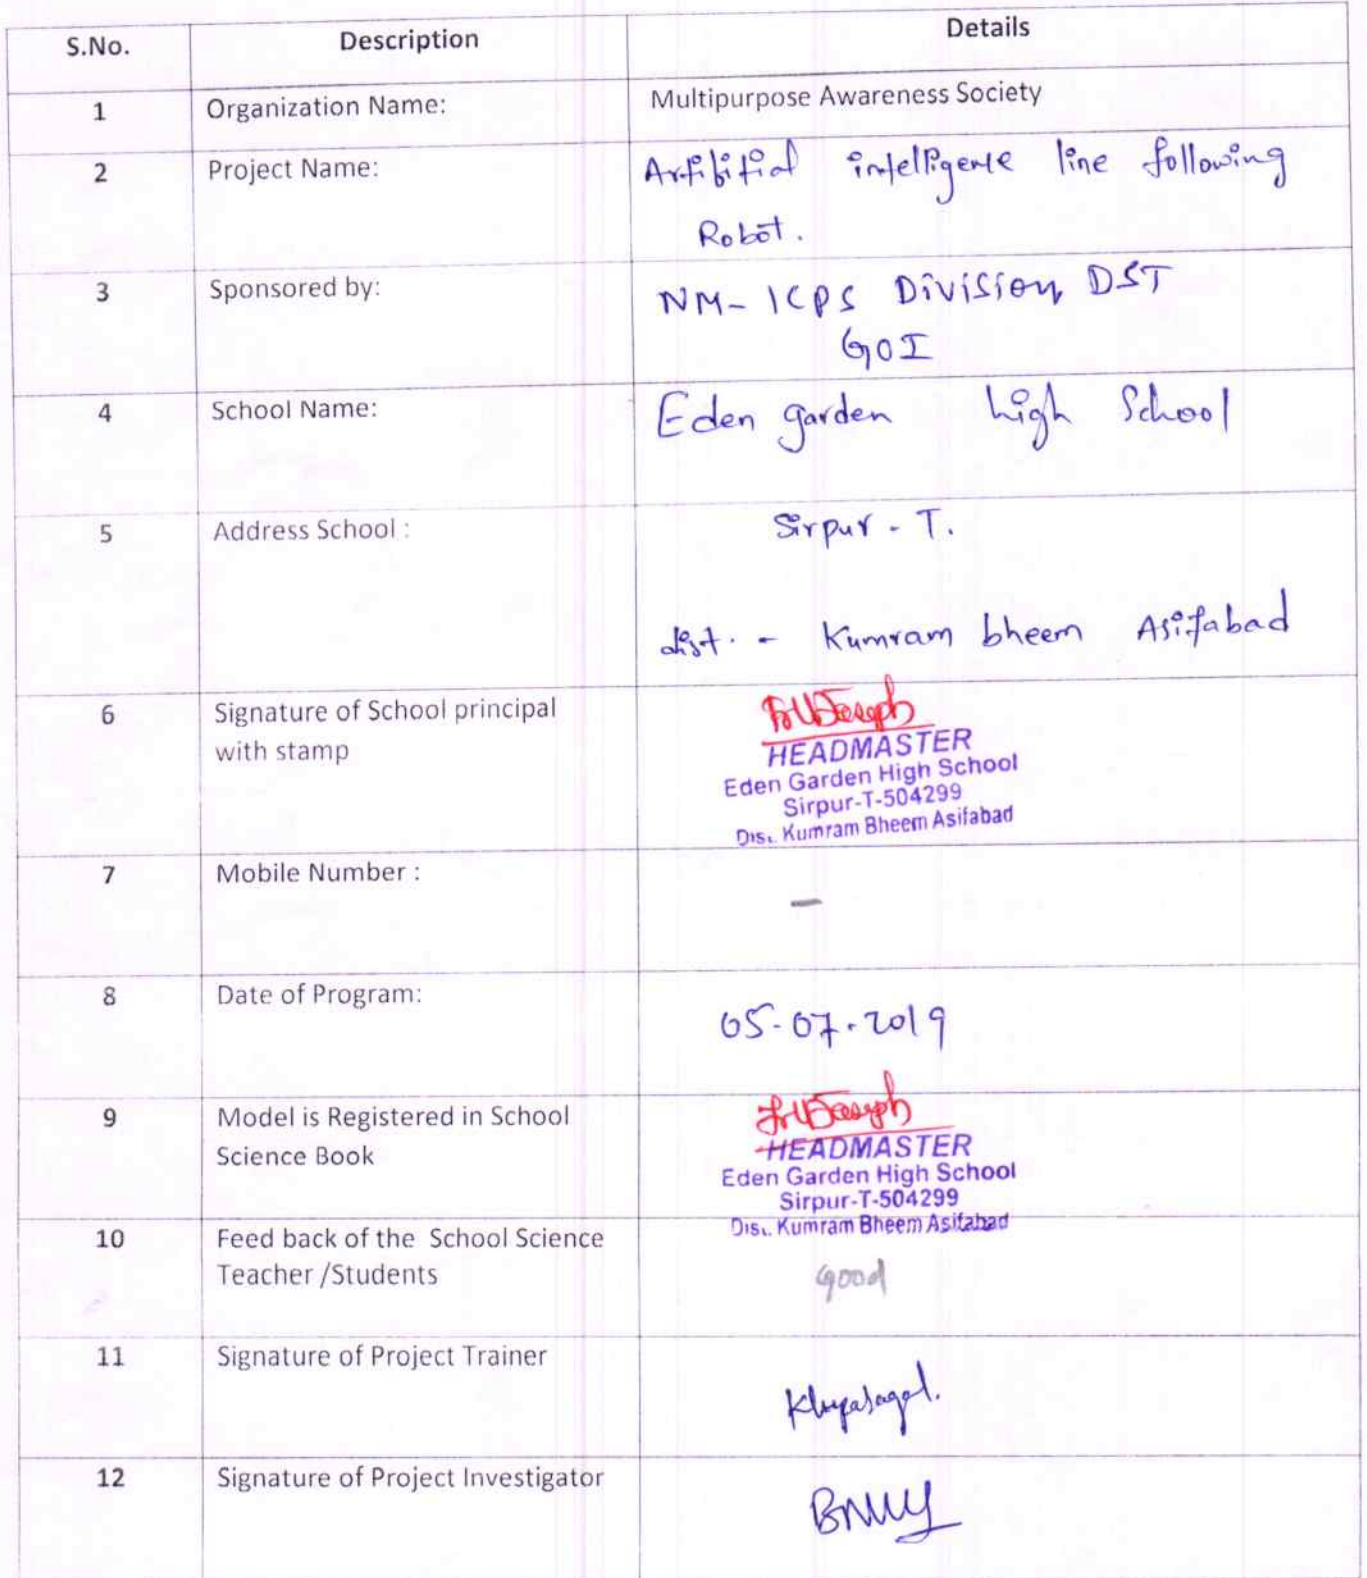 S.No. Description Details
1 Organization Name: Multipurpose Awareness Society
2 Project Name: Artifitial intelligence line following
Robot.
3 Sponsored by: NM-ICPS Division DST
GOI
4 School Name: Eden garden high School
5 Address School : Sirpur - T.
dist. - Kumram bheem Asifabad
6 Signature of School principal
with stamp
HEADMASTER
Eden Garden High School
Sirpur-T-504299
Dist. Kumram Bheem Asifabad
7 Mobile Number : –
8 Date of Program: 05-07-2019
9 Model is Registered in School
Science Book
HEADMASTER
Eden Garden High School
Sirpur-T-504299
Dist. Kumram Bheem Asifabad
10 Feed back of the School Science
Teacher /Students good
11 Signature of Project Trainer
12 Signature of Project Investigator